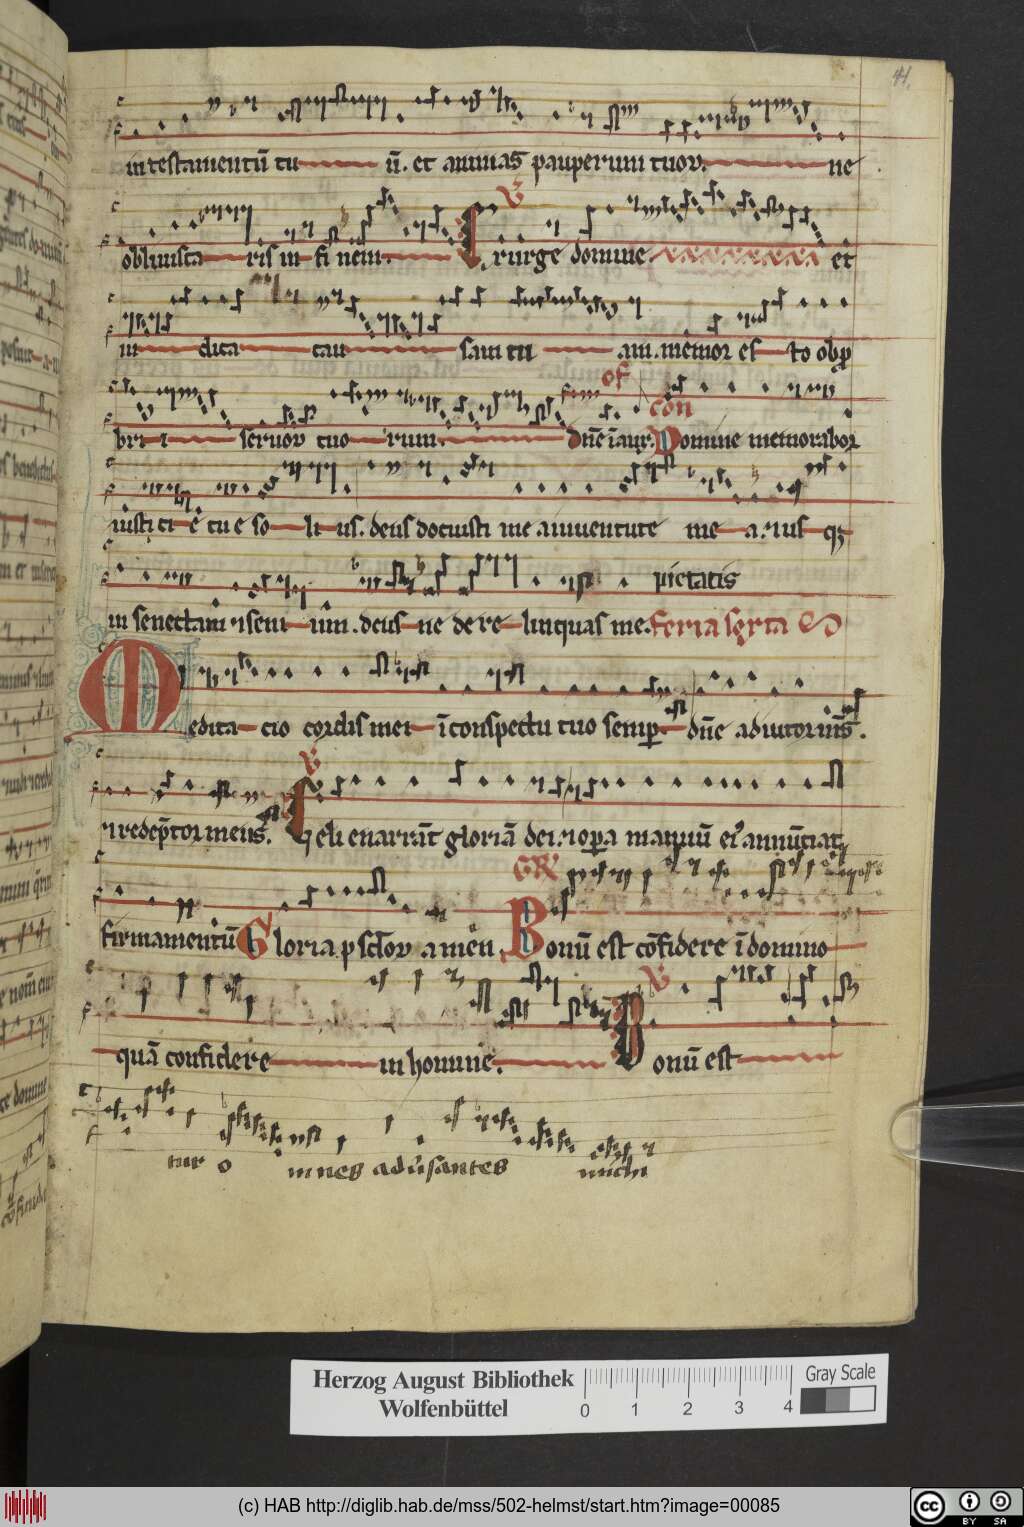 41.
in testamentū tu ū. et animas pauperum tuoꝝ. ne
℣
obliuisca ris in fi nem. Exurge domine et
iu dica cau sam tu am. memor es to obp̱
of
con
bri i seruoꝝ tuo rum. Dn̄e ī aux. Domine memorabor
iusti ci e tu e so li us. deus docuisti me a iuuentute me a. ⁊ us qꝫ
pietatis
in senectam ⁊ seni um. deus ne de re linquas me. Feria sexta
Medita cio cordis mei ī conspectu tuo semꝑ. dn̄e adiutor m̄s.
℣
⁊ redēptor meus. Celi enarrāt gloriā dei. ⁊ opera manuū ei9 annūciat
GR
firmamentū Gloria p sc̄loꝝ amen Bonū est cōfidere ī domino
℣
quā confidere in homine. Bonū est
tur omnes aduersantes michi
Herzog August Bibliothek
Wolfenbüttel
0 1 2 3 4
Gray Scale
(c) HAB http://diglib.hab.de/mss/502-helmst/start.htm?image=00085
cc BY SA